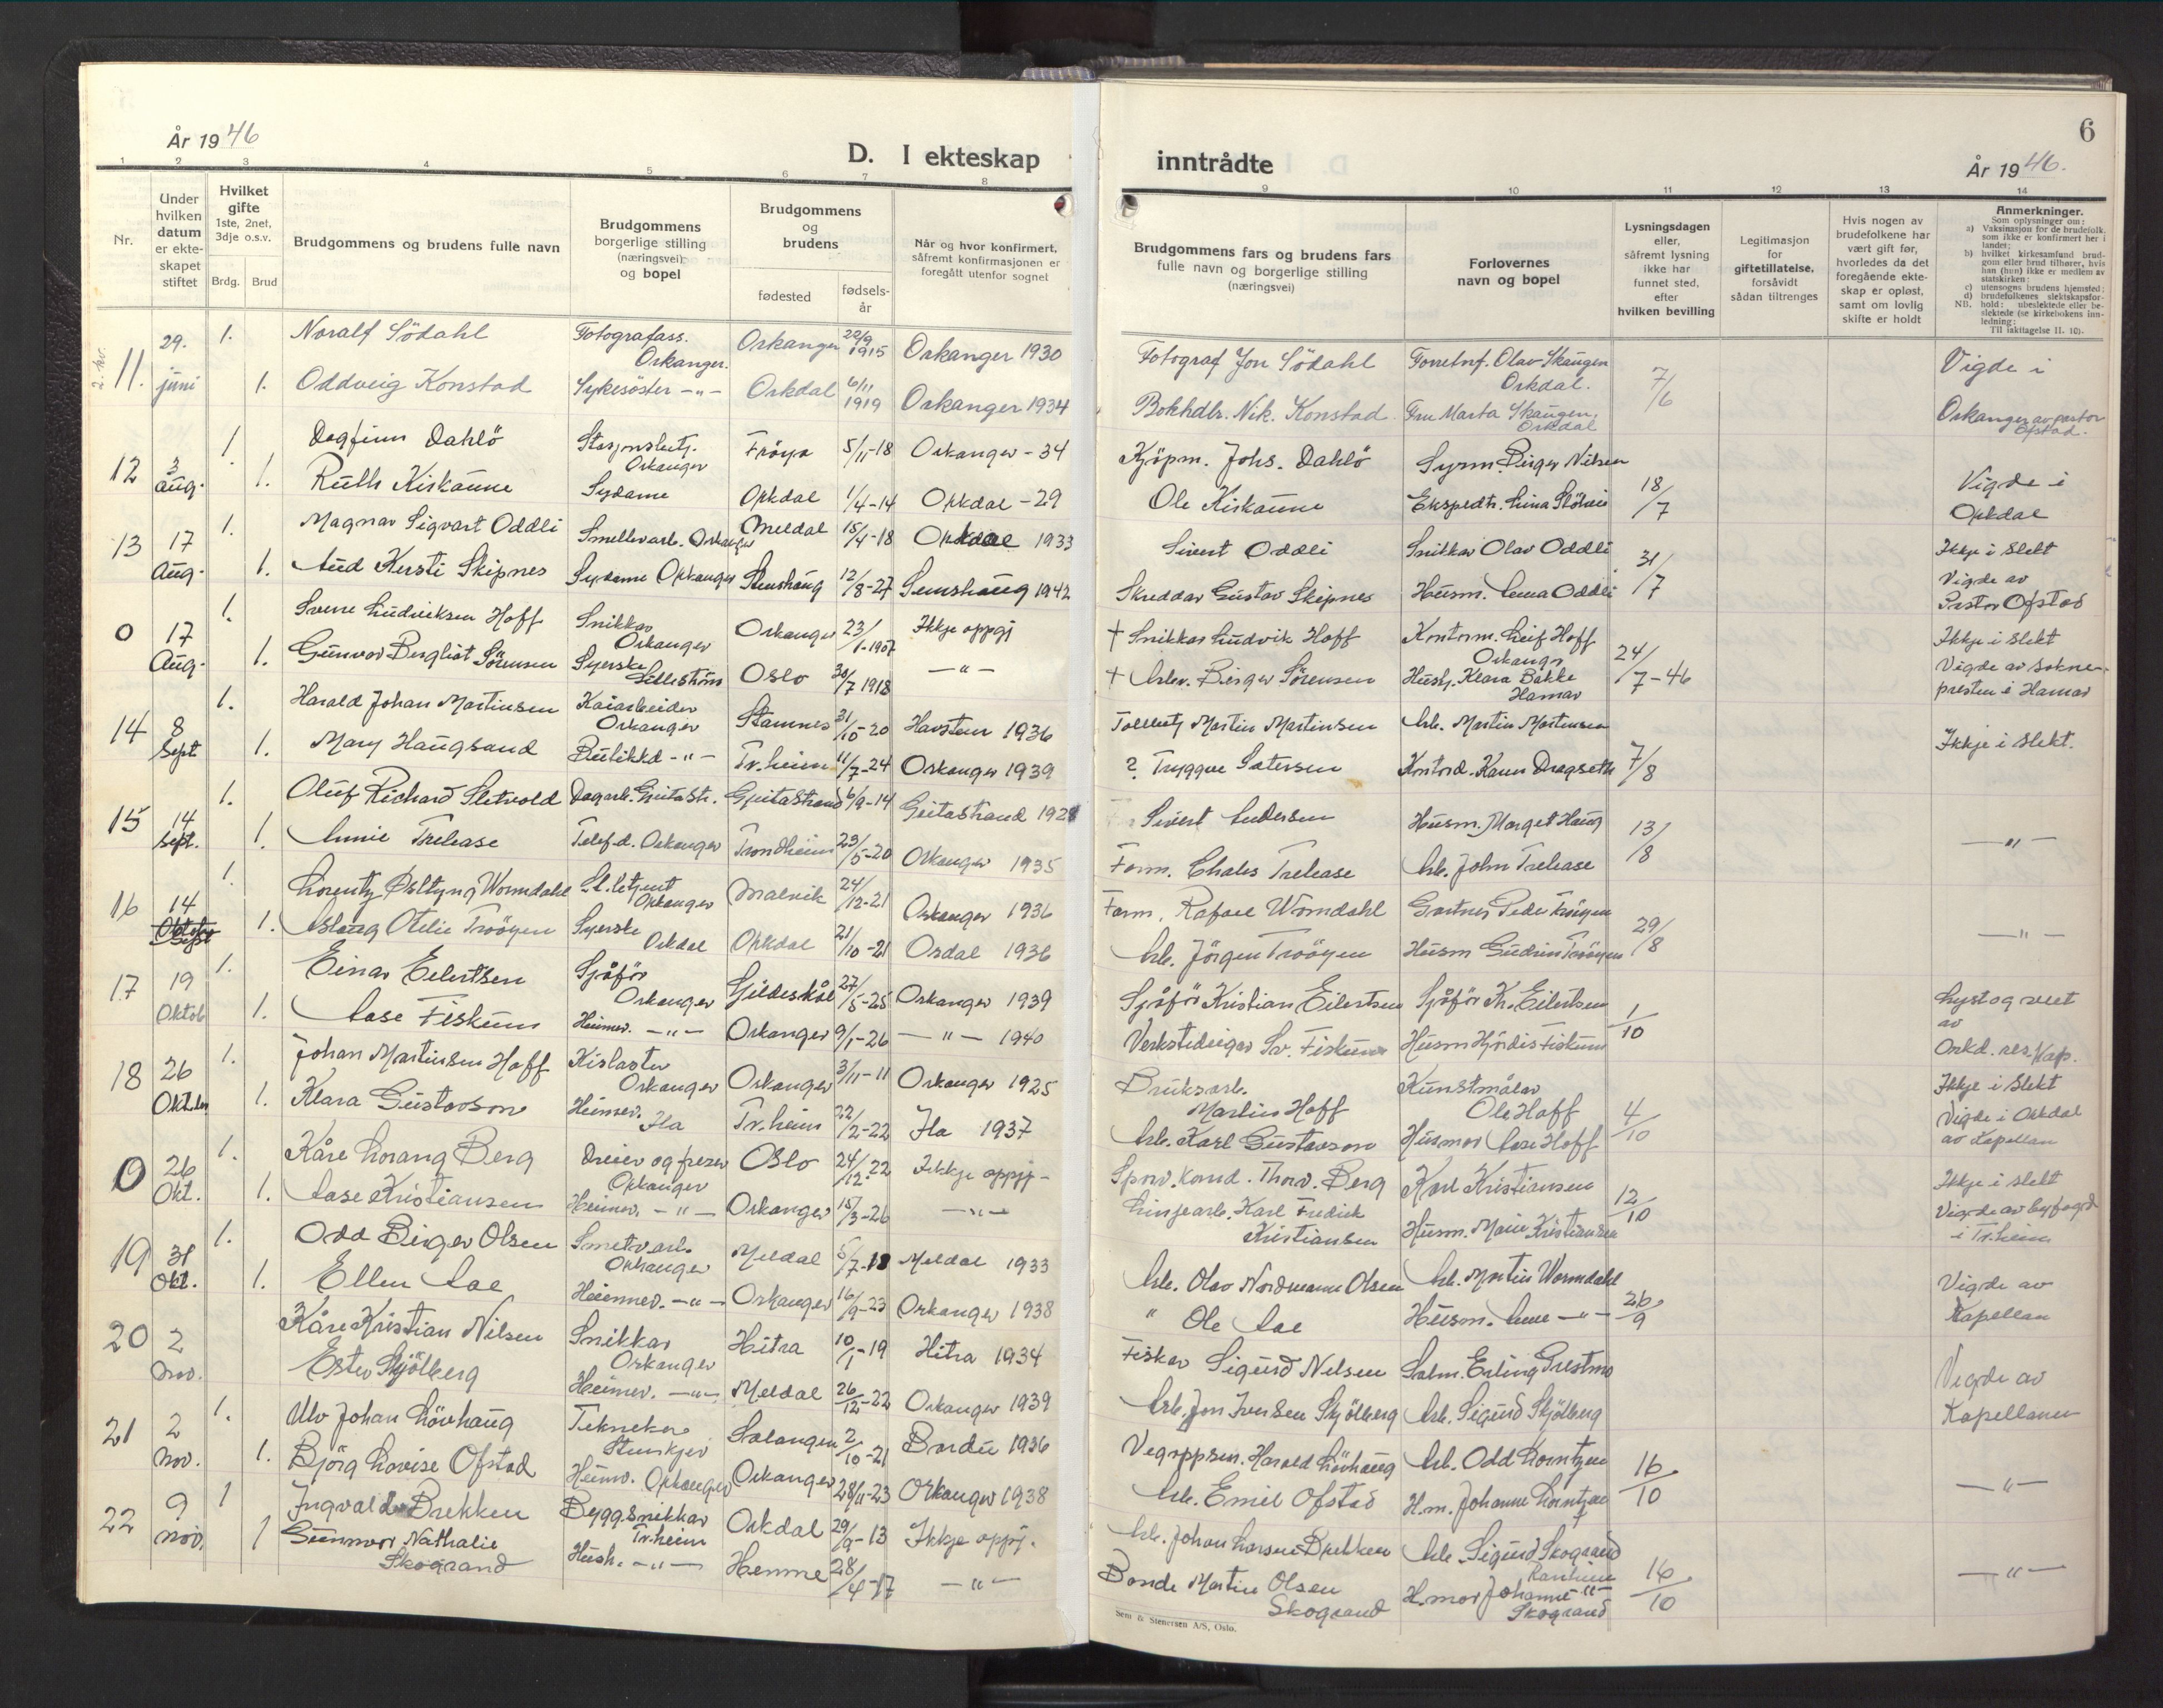 År 1946
D. I ekteskap
1 2 3 4 5 6 7 8
Nr.
Under hvilken datum er ekte-skapet stiftet
Hvilket gifte
1ste, 2net, 3dje o.s.v.
Brdg. Brud
Brudgommens og brudens fulle navn
Brudgommens borgerlige stilling (næringsvei) og bopel
Brudgommens og brudens
fødested
fødsels-år
Når og hvor konfirmert, såfremt konfirmasjonen er foregått utenfor sognet
11. 29. 1. Noralf Södahl Fotografass. Orkanger. Orkanger 1915 Orkanger 1930
juni 1. Oddveig Konstad Sykesöster -"- Orkdal 6/11 1919 Orkanger 1934
12 3 1. Dagfinn Dahlö Orkanger Fröya 5/11-18 Orkanger - 34
aug. 1. Ruth Kiskaune Sydame Orkdal 1/4-14 Orkdal - 29
13 17 1. Magnar Sigvart Oddli Smelteverk. Orkanger Meldal 15/4-18 Orkdal 1933
Aug. 1. Aud Kersti Skipnes Sydame Orkanger 12/8-27 1942
0 17 1. Sverre Ludviksen Hoff Snikkar Orkanger Orkanger 23/1-1907 Ikkje oppgj
Aug. 1. Gunvor Bergliot Sørensen Syerske Lilleström Oslo 30/7 1918 -"-
14 8 1. Harald Johan Martinsen Kaiarbeider Orkanger Stamnes 31/10-20 Harstein 1936
Sept 1. Mary Haugsand Butikkd -"- Tr.heim 11/7-24 Orkanger 1939
15 14 1. Oluf Richard Sletvold Dagarb. Geitastr. Geitastrand 6/9-14 Geitastrand 1928
Sept. 1. Annie Trelease Telef.d. Orkanger Trondheim 23/5-20 Orkanger 1935
16 14 1. Lorentz Wormdahl Orkanger Malvik 24/12-21 Orkanger 1936
Sept 1. Aslaug Otelie Tröoyen Syerske Orkdal Orkdal 21/10-21 Orkdal 1936
17 19 1. Einar Eilertsen Sjåför Orkanger Gildeskål 27/5-25 Orkanger 1939
Oktob 1. Aase Fiskum Heimev. -"- Orkanger 9/1-26 -"- 1940
18 26 1. Johan Martinsen Hoff Kislaster Orkanger Orkanger 3/11-11 Orkanger 1925
Oktbr 1. Klara Gustavson Heimev. Ila Tr.heim 22/2-22 Ila 1937
0 26 1. Kåre Lorang Berg Dreier og freser Orkanger Oslo 24/12-22 Ikkje oppgj-
Okt. 1. Aase Kristiansen Heimev. -"- Orkanger 15/3-26 -"-
19 31 1. Odd Birger Olsen Smelt.arb. Orkanger Meldal 5/7-18 Meldal 1933
Okt. 1. Ellen Aae Heimev. -"- Orkanger 16/9-23 Orkanger 1938
20 2 Kåre Kristian Nilsen Snikkar Orkanger Hitra 10/1-19 Hitra 1934
nov. Ester Skjölberg Heimev. -"- Meldal 26/12-22 Orkanger 1939
21 2 1. Ulv Johan Lövhaug Tekneker Steinkjer Salangen 2/10-21 Bardu 1936
nov. 1. Björg Lovise Ofstad Heimv. Orkanger Orkanger 28/11-23 Orkanger 1938
22 9 1 Ingvald Brekken Byggsnikkar Tr.heim Orkdal 29/9-13 Ikkje oppj.
nov. 1 Gunvor Nathalie Skograand Hush. -"- Hemne 28/4-17 -"-
6
inntrådte
År 1946.
9 10 11 12 13 14
Brudgommens fars og brudens fars fulle navn og borgerlige stilling (næringsvei)
Forlovernes navn og bopel
Lysningsdagen eller, såfremt lysning ikke har funnet sted, efter hvilken bevilling
Legitimasjon for giftetillatelse, forsåvidt sådan tiltrenges
Hvis nogen av brudefolkene har vært gift før, hvorledes da det foregående ekte-skap er opløst, samt om lovlig skifte er holdt
Anmerkninger.
Som oplysninger om:
a) Vaksinasjon for de brudefolk, som ikke er konfirmert her i landet;
b) hvilket kirkesamfund brud-gom eller brud tilhører, hvis han (hun) ikke er medlem av statskirken;
c) utensogns brudens hjemsted;
d) brudefolkenes slektskapsfor-hold: ubeslektede eller be-slektede (se kirkebokens inn-ledning;
NB. Til iakttagelse II. 10).
Fotograf Jon Södahl Forretnf. Olav Skaugen Orkdal. 7/6 Vigde i
Bokhdlr. Nik. Konstad Fru Marta Skaugen, Orkdal Orkanger av pastor Ofstad.
Kjöpm. Johs. Dahlö Birger Nilsen 18/7 Vigde i
Ole Kiskaune Orkdal
Sivert Oddli Snikkar Olav Oddli 31/7 Ikkje i Slekt
Skreddar Gustav Skipnes Husm. Anna Oddli Vigde av Pastor Ofstad
† Snikkar Ludvik Hoff Kontorm. Leif Hoff Orkangr 24/7-46 Ikkje i Slekt
† Arbv. Birger Sørensen Hush. Klara Bakke Hamar Vigde av Sokne-presten i Hamar
Martin Martinsen Arb. Martin Martinsen 7/8 Ikkje i Slekt.
? Tryggve Kontord. Karen Dragseth
Sivert Andersen Husm. Marget Haug 13/8 -"-
Form. Chales Trelease Arb. John Trelease
Form. Rafael Wormdahl Gartner Peder 29/8 -"-
Arb. Jörgen Tröoyen Husm Gudrun Tröoyen
Sjåför Kristian Eilertsen Sjåför Kr. Eilertsen 1/10 Lyst og viet av
Verksteideigar Sv. Fiskum Husm Hjördis Fiskum Orkd. res. kap.
Bruksarb. Martin Hoff Kunstmålar Ole Hoff 4/10 Ikkje i Slekt
Arb. Karl Gustavson Husmor Aase Hoff Vigde i Orkdal av kapellan
Sporv. kond. Thorv. Berg Karl Kristiansen 12/10 Ikkje i slekt
Linjearb. Karl Fredrik Kristiansen Husm. Marie Kristiansen Vigde av byfogd i Tr.heim
Arb. Olav Nordmann Olsen Arb. Martin Wormdahl 26/9 Vigde av
" Ole Aae Husm. Anne -"- Kapellan
Fisker Sigurd Nilsen Salm. Erling Prestmo Vigde av
Arb. Jon Iversen Skjölberg Arb. Sigurd Skjölberg Kapellanen
Vegoppsm. Harald Lövhaug Arb. Odd Lorntzen 16/10 -"-
Arb. Emil Ofstad H.m. Johanne Lorntzen
Arb. Johan Larsen Brekken Arb. Sigurd Skograand 16/10 -"-
Bonde Martin Olsen Skograand H.mor Johanne -"- Skograand
Sem & Stenersen A/S, Oslo.